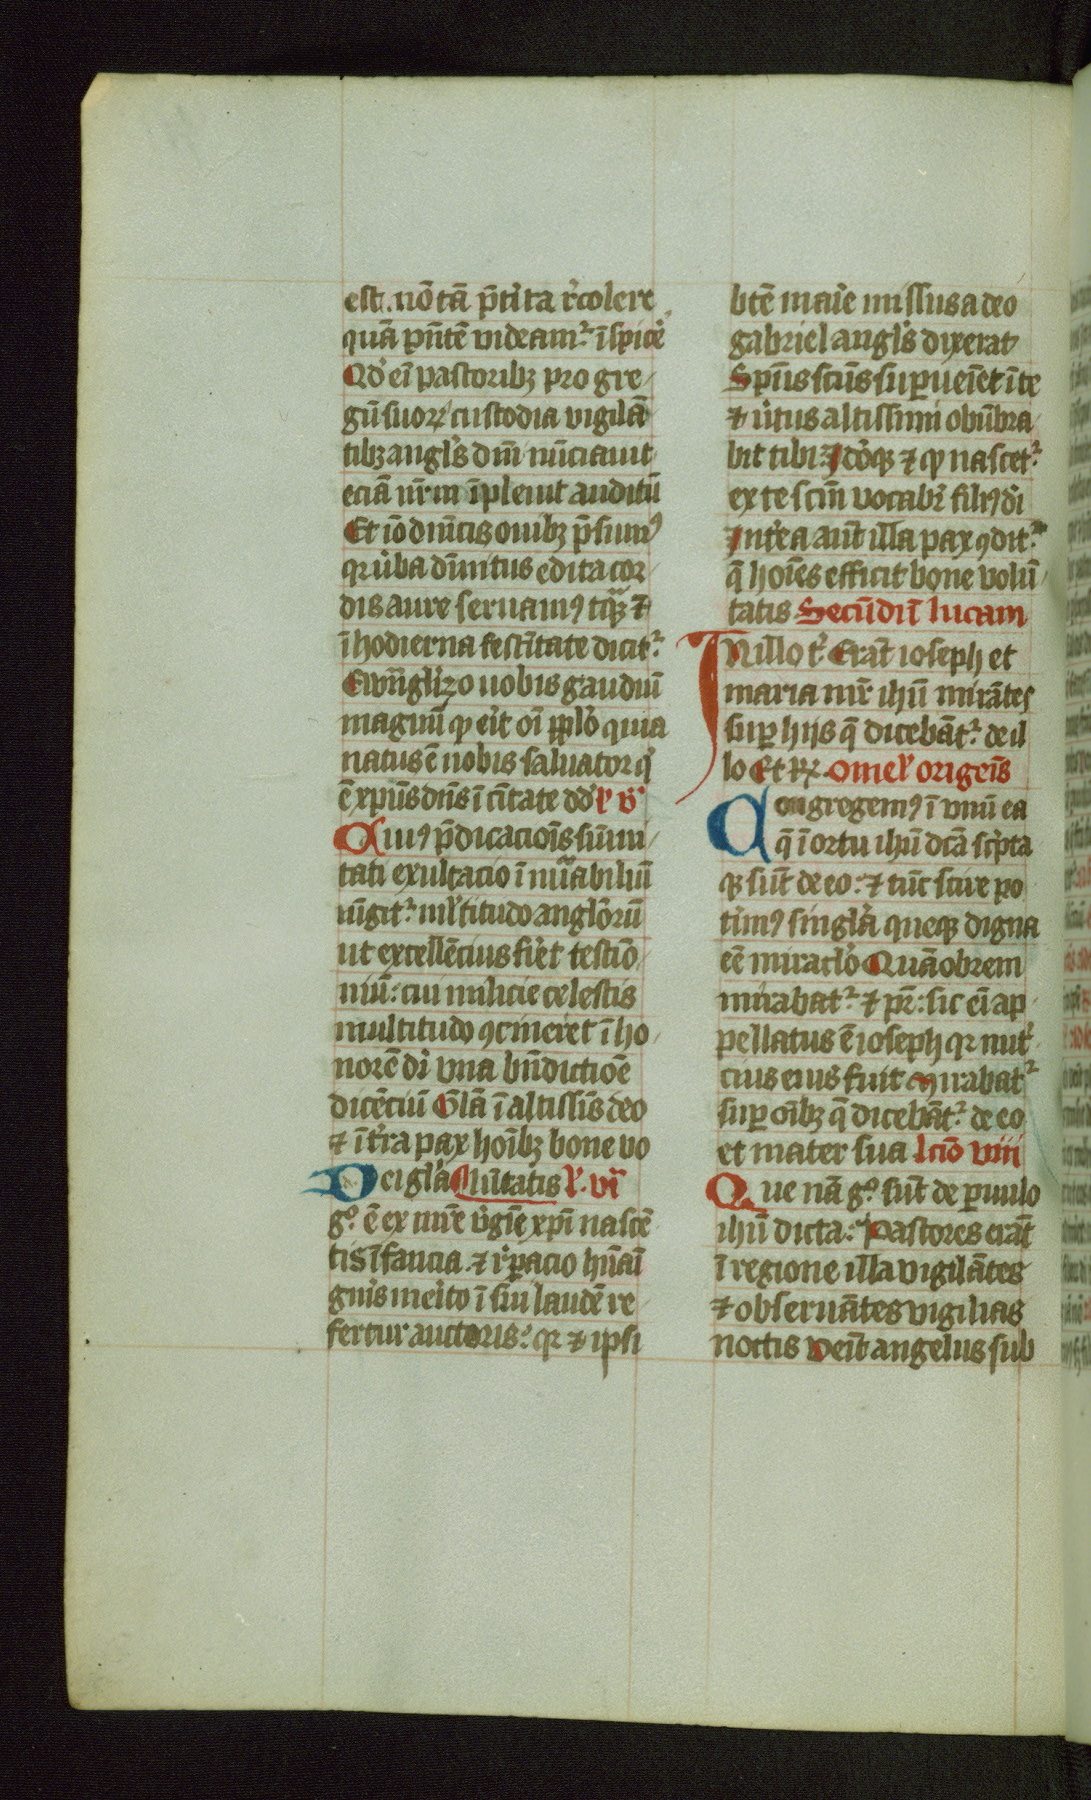 est. nō tā p̄tīta r̄colere
quā p̄ntē videam᷑ īspicē
Qd̓ eī pastoribꝫ pro gre
gū suoꝝ custodia vigilā
tibꝫ angl̓s dn̄i nūciauit
eciā nr̄m īpleuit auditū
Et iō dn̄icis ouibꝫ p̄sumꝰ
qꝛ ūba dīnitus edita cor
dis aure seruamꝰ
ī hodierna festītate dicit᷑
Ewn̄glizo uobis gaudiū
magnū qd̓ erit oī pplo quia
natus ē nobis saluator q̓
ē xp̄us dn̄s ī ciītate dd̓ l̓ v̓
Cuiꝰ p̄dicacioīs sūmi
tati exultacio
ūgit᷑ ml̓titudo angl̓orū
ut excellēcius fiet testīo
niū: cui milicie celestis
multitudo ꝯcineret ī ho
norē dī vna bn̄dictiōe
dicēciū Gl̓a ī altissīs deo
⁊ ī t̄ra pax hoībꝫ bone vo
Dei gl̓a lūtatis l̓. vi
gͦ ē ex mr̄e v̓gīe xp̄i nascē
tis īfancia ⁊ r̓pacio hūai
gn̄is merito ī filii laudē re
fertur auctoris: qꝛ ⁊ ipsi
btē marie missus a deo
gabriel angl̓s dixerat
Sp̄us scūs suꝑueīet ī te
⁊ v̓tus altissimi obūbra
bit tibi: Idōqꝫ ⁊ qd̓ nascet᷑
ex te scm̄ vocabr̄ filiꝰ dī
Int̓ea aut̄ illa pax ꝯdit᷑
q̄ hoīes efficit bone volū
tatis Secūdū lucam
In illo t̓. Erāt ioseph et
maria mr̄ ihū mirātes
suꝑ hijs q̄ dicebāt᷑ de il
lo Et rꝝ. omel̓ origeīs
Congregemꝰ ī vnū ea
q̄ ī ortu ihū dc̄a sc̓pta
qꝫ sūt de eo: ⁊ tūc scire po
t̓imꝰ singl̓a queqꝫ digna
eē miracl̓o Quāobrem
mirabat᷑ ⁊ pr̄: sic eī ap
pellatus ē ioseph qꝛ nut̓
cius eius fuit Mirabat᷑
suꝑ oībꝫ q̄ dicebāt᷑ de eo
et mater sua lc̄io viii
Que nā gͦ sūt de paruulo
ihū dicta: Pastores erāt
ī regione illa vigilātes
⁊ obseruātes vigilias
noctis Veīt angelus sub